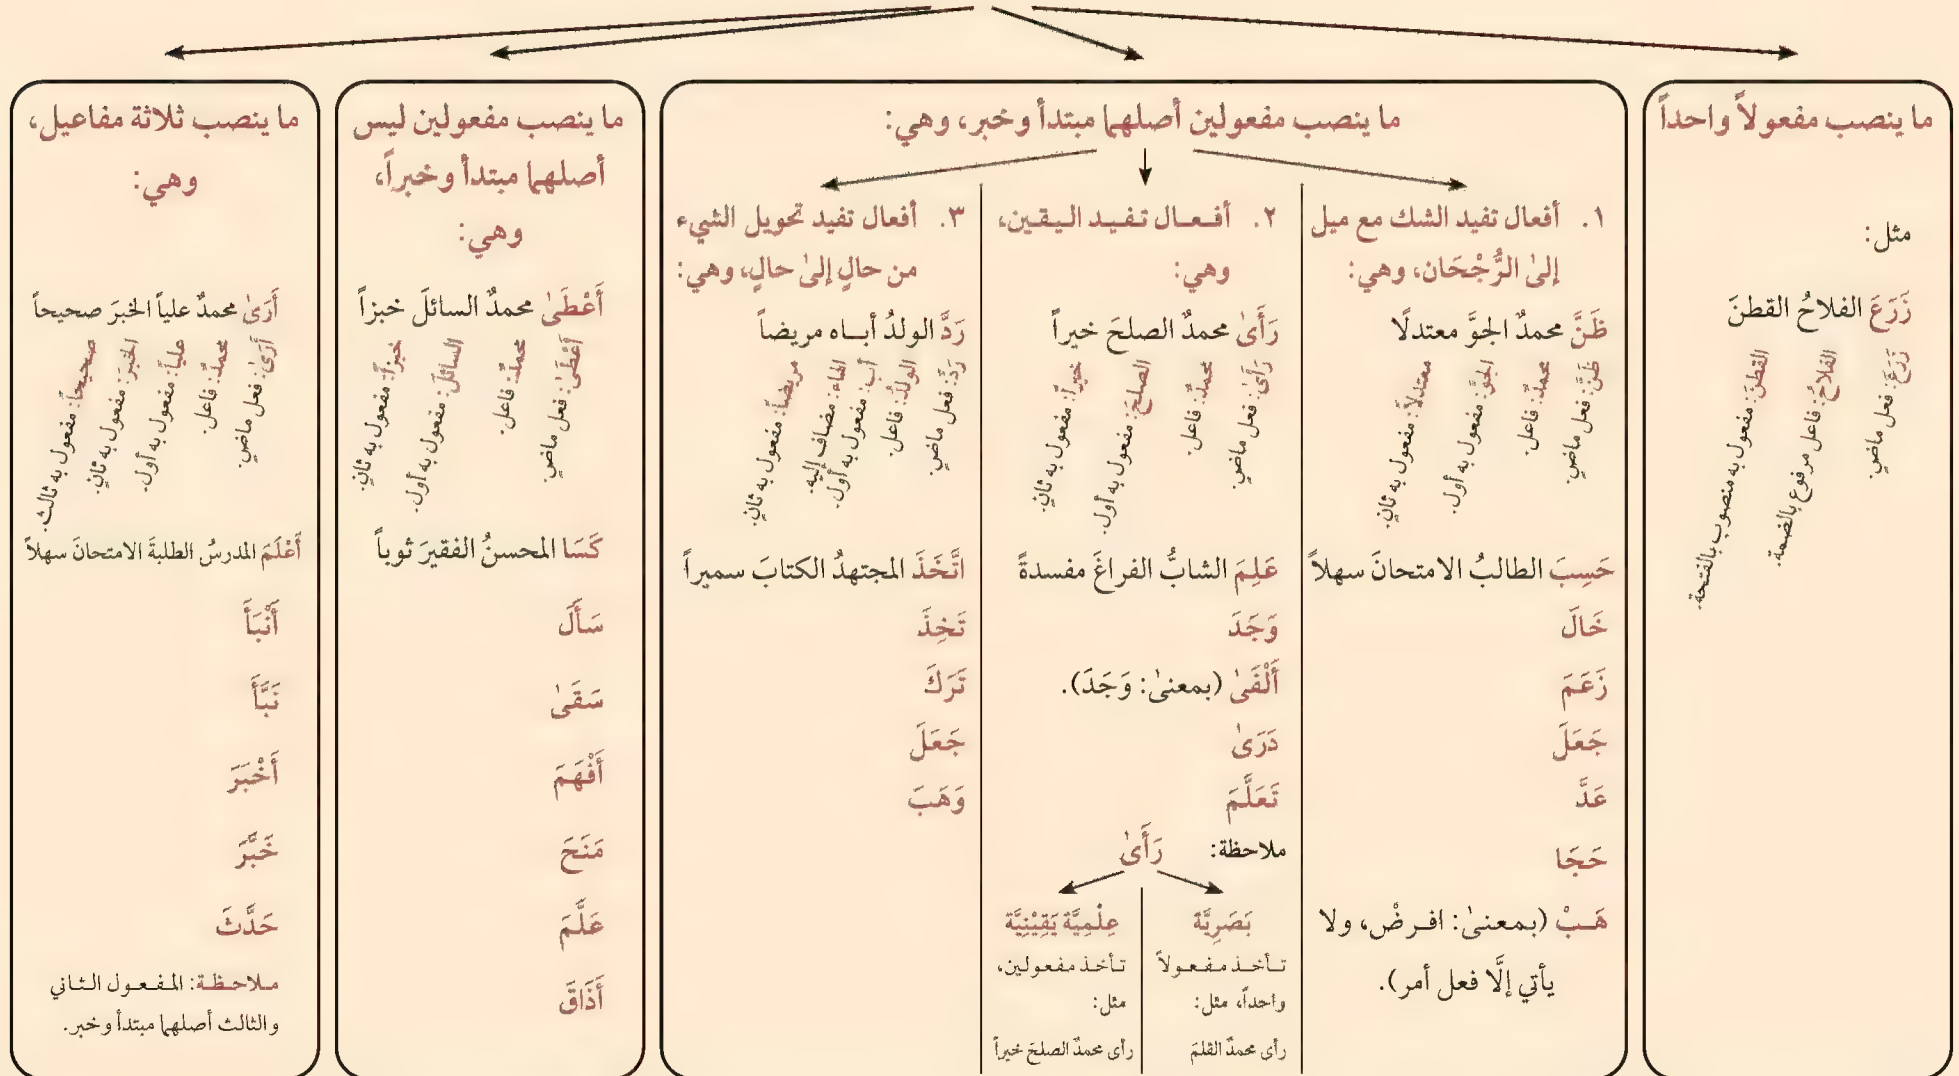 ما ينصب مفعولاً واحداً
مثل:
زَرَعَ الفلاحُ القطنَ
زَرَعَ: فعل ماضٍ.
الفلاحُ: فاعل مرفوع بالضمة.
القطنَ: مفعول به منصوب بالفتحة.
ما ينصب مفعولين أصلهما مبتدأ وخبر، وهي:
١. أفعال تفيد الشك مع ميل
إلىٰ الرُّجْحَان، وهي:
ظَنَّ محمدٌ الجوَّ معتدلًا
ظَنَّ: فعل ماضٍ.
محمدٌ: فاعل.
الجوَّ: مفعول به أول.
معتدلاً: مفعول به ثانٍ.
حَسِبَ الطالبُ الامتحانَ سهلاً
خَالَ
زَعَمَ
جَعَلَ
عَدَّ
حَجَا
هَبْ (بمعنىٰ: افرضْ، ولا
يأتي إلَّا فعل أمر).
٢. أفعال تفيد اليقين،
وهي:
رَأَىٰ محمدٌ الصلحَ خيراً
رَأَىٰ: فعل ماضٍ.
محمدٌ: فاعل.
الصلحَ: مفعول به أول.
خيراً: مفعول به ثانٍ.
عَلِمَ الشابُّ الفراغَ مفسدةً
وَجَدَ
أَلْفَىٰ (بمعنىٰ: وَجَدَ).
دَرَىٰ
تَعَلَّمَ
ملاحظة: رَأَىٰ
بَصَرِيَّة
تأخذ مفعولاً
واحداً، مثل:
رأى محمدٌ القلمَ
عِلْمِيَّة يَقِيْنِيَّة
تأخذ مفعولين،
مثل:
رأى محمدٌ الصلحَ خيراً
٣. أفعال تفيد تحويل الشيء
من حالٍ إلىٰ حالٍ، وهي:
رَدَّ الولدُ أباه مريضاً
رَدَّ: فعل ماضٍ.
الولدُ: فاعل.
أب: مفعول به أول.
الهاء: مضاف إليه.
مريضاً: مفعول به ثانٍ.
اتَّخَذَ المجتهدُ الكتابَ سميراً
تَخِذَ
تَرَكَ
جَعَلَ
وَهَبَ
ما ينصب مفعولين ليس
أصلهما مبتدأ وخبراً،
وهي:
أَعْطَىٰ محمدٌ السائلَ خبزاً
أَعْطَىٰ: فعل ماضٍ.
محمدٌ: فاعل.
السائلَ: مفعول به أول.
خبزاً: مفعول به ثانٍ.
كَسَا المحسنُ الفقيرَ ثوباً
سَأَلَ
سَقَىٰ
أَفْهَمَ
مَنَحَ
عَلَّمَ
أَذَاقَ
ما ينصب ثلاثة مفاعيل،
وهي:
أَرَىٰ محمدٌ علياً الخبرَ صحيحاً
أَرَىٰ: فعل ماضٍ.
محمدٌ: فاعل.
علياً: مفعول به أول.
الخبرَ: مفعول به ثانٍ.
صحيحاً: مفعول به ثالث.
أَعْلَمَ المدرسُ الطلبةَ الامتحانَ سهلاً
أَنْبَأَ
نَبَّأَ
أَخْبَرَ
خَبَّرَ
حَدَّثَ
ملاحظة: المفعول الثاني
والثالث أصلهما مبتدأ وخبر.